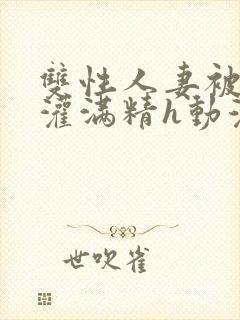 雙性人妻被
灌滿精h動漫
世吹雀